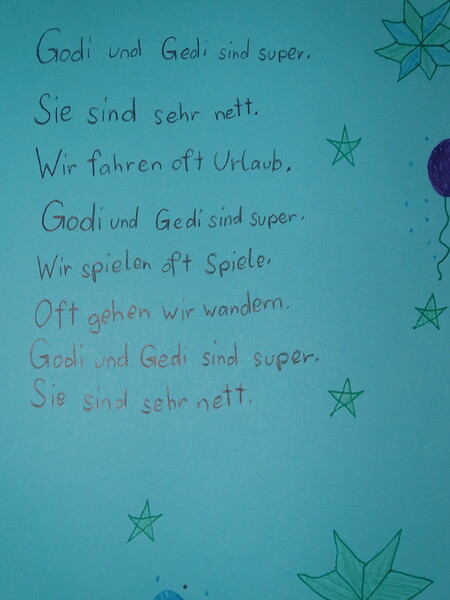 Godi und Gedi sind super.
Sie sind sehr nett.
Wir fahren oft Urlaub.
Godi und Gedi sind super.
Wir spielen oft Spiele.
Oft gehen wir wandern.
Godi und Gedi sind super.
Sie sind sehr nett.